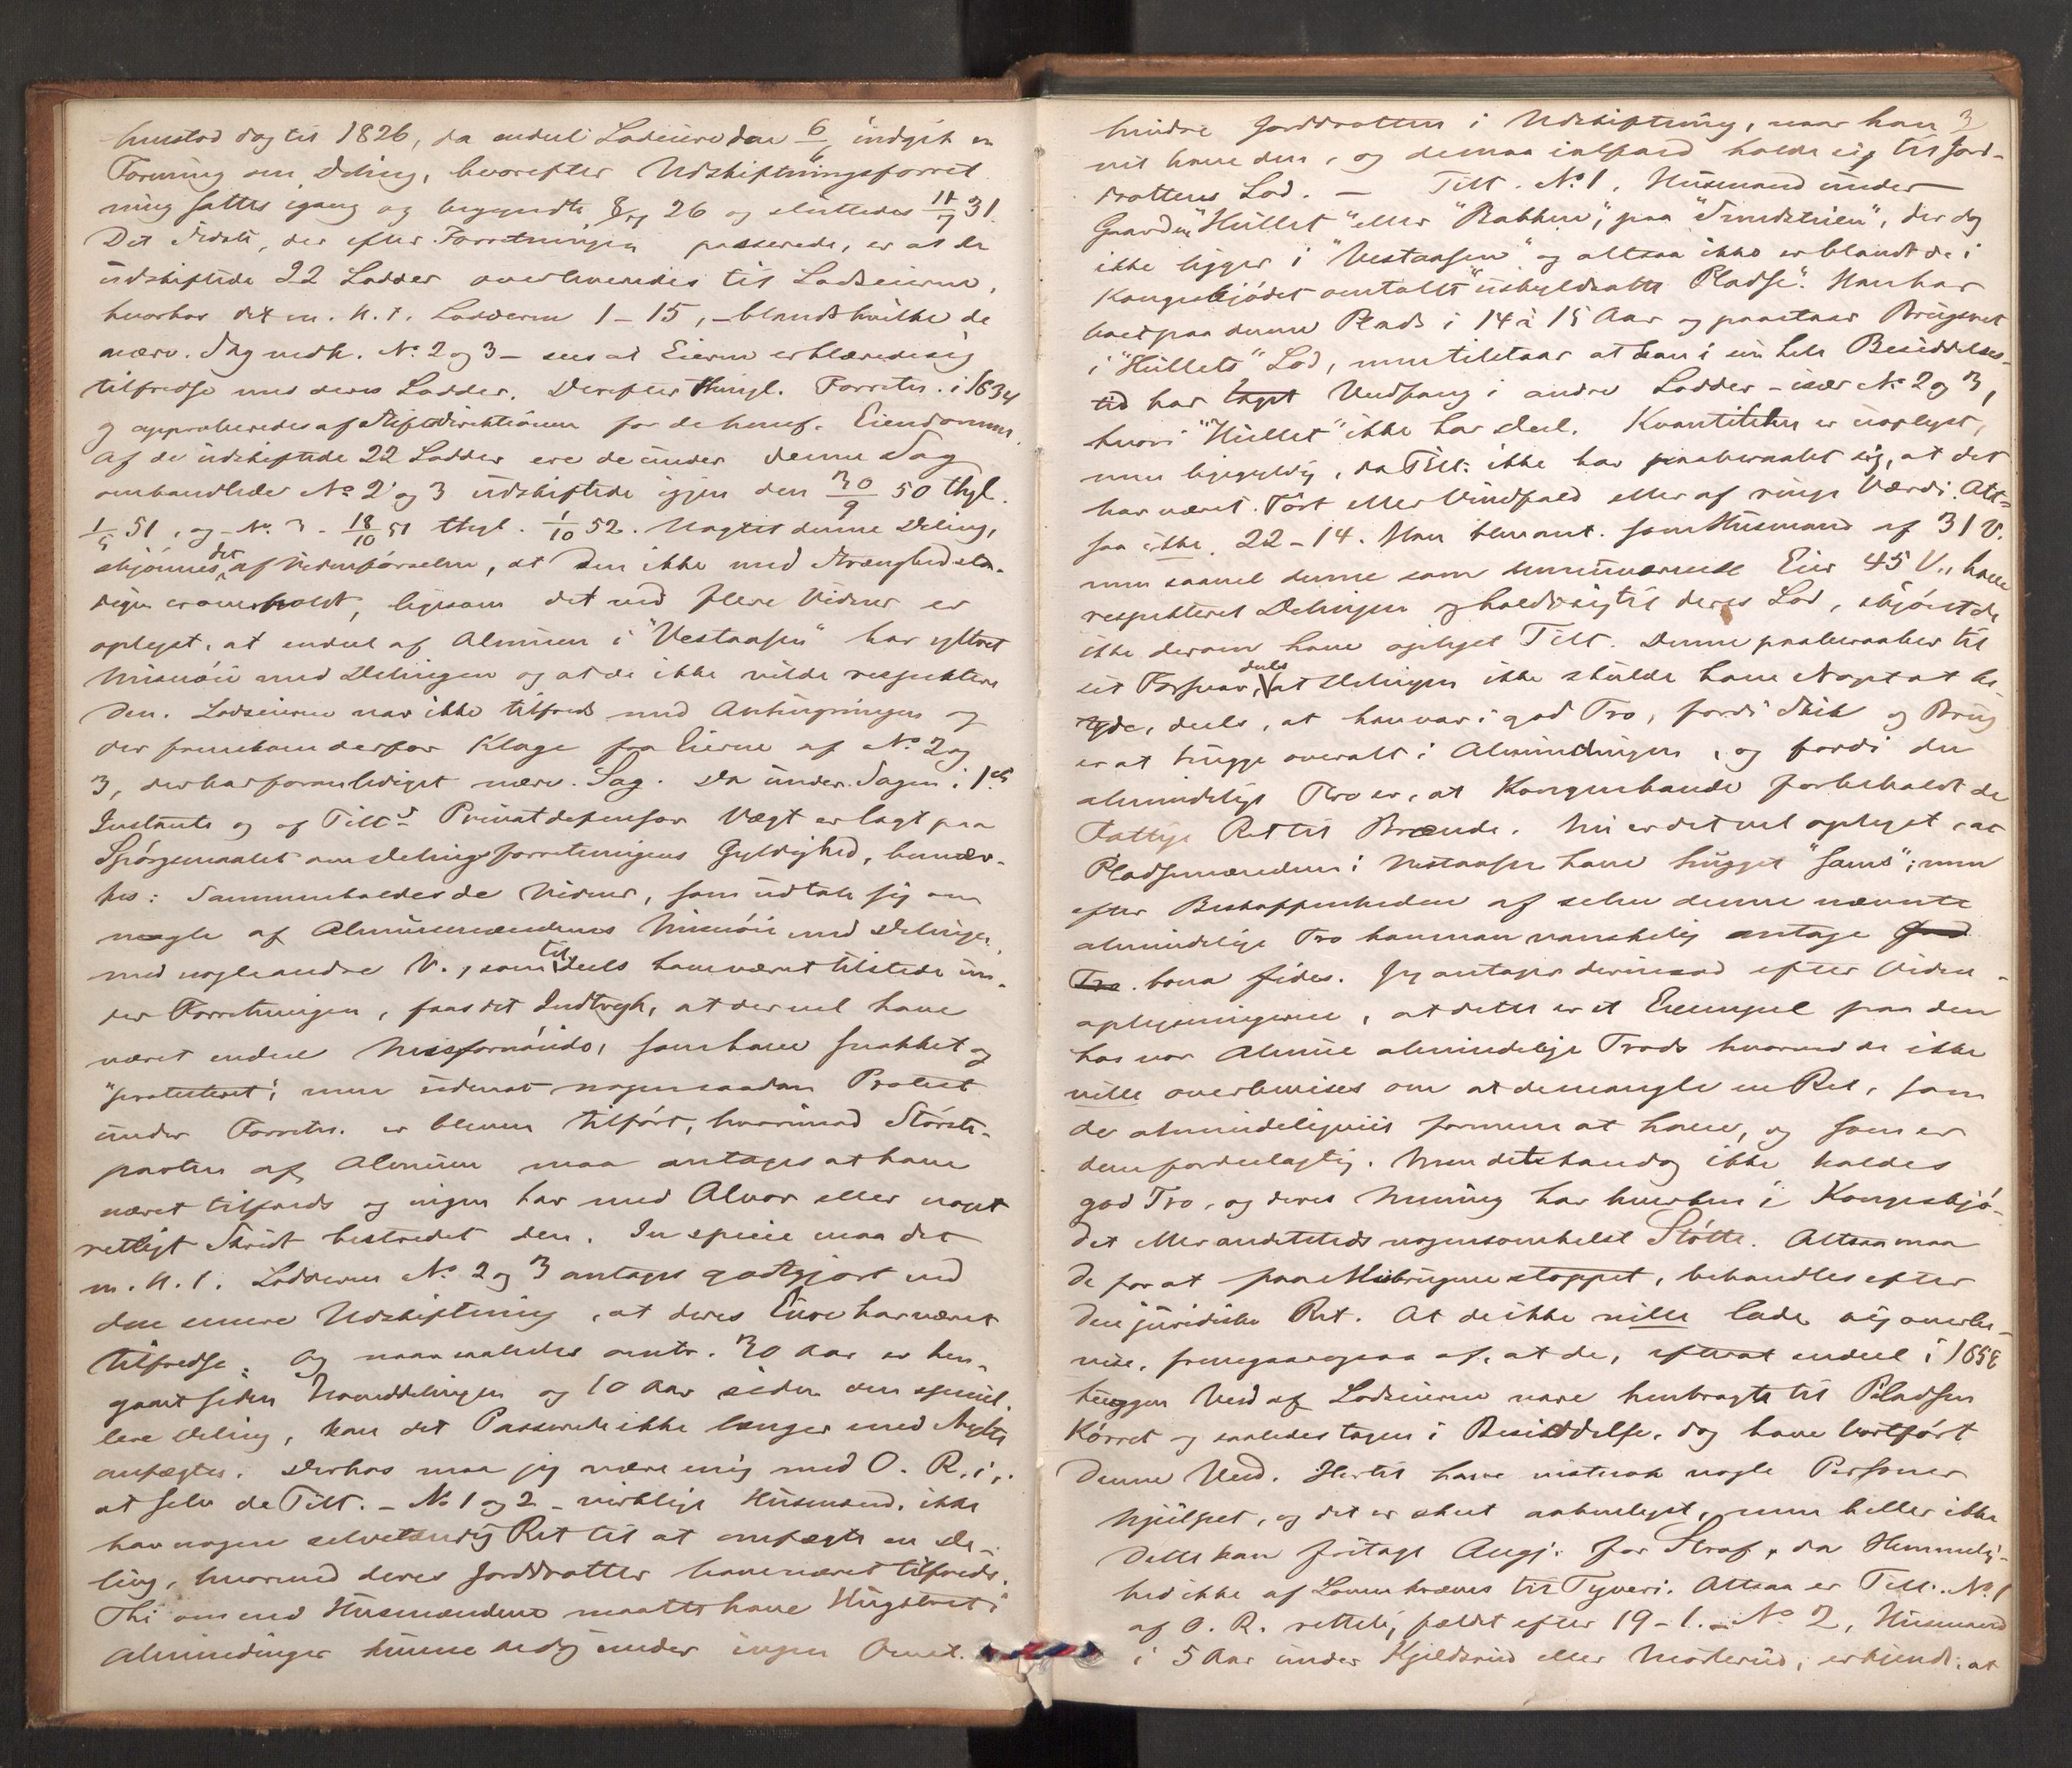 hunstod dog til 1826, da endeel Lodeiere den 6/6 indgik en
Forening om Deling, hvorefter Udskiftningsforret
ning sattes igang og begyndte 8/7 26 og sluttedes 11/7 31.
Det Sidste, der efter Forretningen passerede, er at de
udskiftede 22 Lodder overleveredes til Lodeierne,
hvorhos det m. H. t. Lodderne 1 – 15, – blandt hvilke de
nærv. Sag vedk. No. 2 og 3 – sees at Eierne erklærede sig
tilfredse med deres Lodder. Derefter thingl. Forretn. i 1834
og approberedes af Stiftsdirektionen for de benef. Eiendomme.
Af de udskiftede 22 Lodder ere de under denne Sag
omhandlede No 2 og 3 udskiftede igjen den 30/9 50 thgl.
1/5 51, og No. 3 – 18/10 51 thgl. 1/10 52. Uagtet denne Deling,
skjönnes det af Vidneförselen, at den ikke med Strænghed sta-
digen er overholdt, ligesom det ved flere Vidner er
oplyst, at endeel af Almuen i "Vestaasen" har yttret
Misnöie med Delingen og at de ikke vilde respektere
den. Lodeierne var ikke tilfreds med Anhugningen og
der fremkom derfor Klage fra Eierne af No. 2 og
3, der har foranlediget nærv. Sag. Da under Sagen i 1ste
Instants og af Tilts Privatdefensor Vægt er lagt paa
Spörgsmaalet om Delingsforretningens Gyldighed, bemær-
kes: Sammenholdes de Vidner, som udtale sig om
nogle af Almuesmændenes Misnöie med Delingen,
med nogle andre V., som tildeels have været tilstede un-
der Forretningen, faaes det Indtryk, at der vel have
været endeel Misfornöiede, som have snakket og
"protesteret"; men uden at nogen saadan Protest
under Forretn. er bleven tilfört, hvorimod Störste-
parten af Almuen maa antages at have
været tilfreds og ingen har med Alvor eller noget
retligt Skridt bestredet den. In specie maa det
m. H. t. Lodderne No 2 og 3 antages godtgjort ved
den senere Udskiftning, at deres Eiere har været
tilfredse. Og naar saaledes omtr. 30 Aar er hen-
gaaet siden Hoveddelingen og 10 Aar siden den speciel-
lere Deling, kan det Passerede ikke længer med Nytte
anfægtes. Derhos maa jeg være enig med O. R. i,
at selv de Tilt. – No 1 og 2 – virkelige Husmænd, ikke
har nogen selvstændig Ret til at anfægte en De-
ling, hvormed deres Jorddrotter have været tilfreds.
Thi om end Husmændene maatte have Hugstret i
Almindinger kunne de dog under ingen Omst.
3
hindre Jorddrotten i Udskiftning, naar han
vil have den, og de maa ialfald holde sig til Jord-
drottens Lod. – Tilt. No 1, Husmand under
Gaarden "Hullet" eller "Bakken", paa , der dog
ikke ligger i "Vestaasen" og altsaa ikke er blandt de i
Kongeskjödet omtalte "uskyldsatte Pladse". Han har
boet paa denne Plads i 14 à 15 Aar og paastaar Brugsret
i "Hullets" Lod, men tilstaar at han i sin hele Besiddelses-
tid har taget Vedfang i andre Lodder – især No 2 og 3,
hvori "Hullet" ikke har Deel. Kvantiteten er uoplyst,
men ligegyldig, da Tilt. ikke har paaberaabt sig, at det
har været Tört eller Vindfald eller af ringe Værdi. Alt-
saa ikke 22 – 14. Han blev ant. som Husmand af 31 V.
men saavel denne som nuværende Eier 45 V., have
respekteret Delingen og holdt sig til deres Lod, skjöndt de
ikke derom have oplyst Tilt. Denne paaberaaber til
sit Forsvar, deels at Delingen ikke skulde have Noget at be-
tyde, deels, at han var i god Tro, fordi Skik og Brug
er at hugge overalt i Almindingen, og fordi den
almindelige Tro er, at Kongen havde forbeholdt de
Fattige Ret til Brænde. Nu er det vel oplyst, at
Pladsmændene i Vestaasen have hugget "sams"; men
efter Beskaffenheden af selve denne nævnte
almindelige Tro kan man vanskelig antage God
Tro. bona fides. Jeg antager derimod efter Vidne-
oplysningerne, at dette er et Exempel paa den
hos vor Almue almindelige Trods hvorved de ikke
ville overbevises om at de mangle en Ret, som
de almindeligviis formene at have, og som er
dem fordeelagtig. Men dette kan dog ikke kaldes
god Tro, og deres Mening har hverken i Kongeskjö-
det eller andetsteds nogensomhelst Stötte. Altsaa maa
de for at faae Misbrugene stoppet, behandles efter
den juridiske Ret. At de ikke ville lade sig overbe-
vise, fremgaar ogsaa af, at de, efterat endeel i 1858
huggen Ved af Lodeierne vare henbragte til Pladsen
Körret og saaledes tagen i Besiddelse, dog have bortfört
denne Ved. Hertil have nogle Personer
hjulpet, og det er skeet aabenlyst, men heller ikke
dette kan fritage Angj. for Straf, da Hemmelig-
hed ikke af Loven kræves til Tyveri. Altsaa er Tilt. No. 1
af O. R. rettelig fældt efter 19 – 1. – No 2, Husmand
i 5 Aar under Kjeldsrud eller Mörterud, erkjendt, at